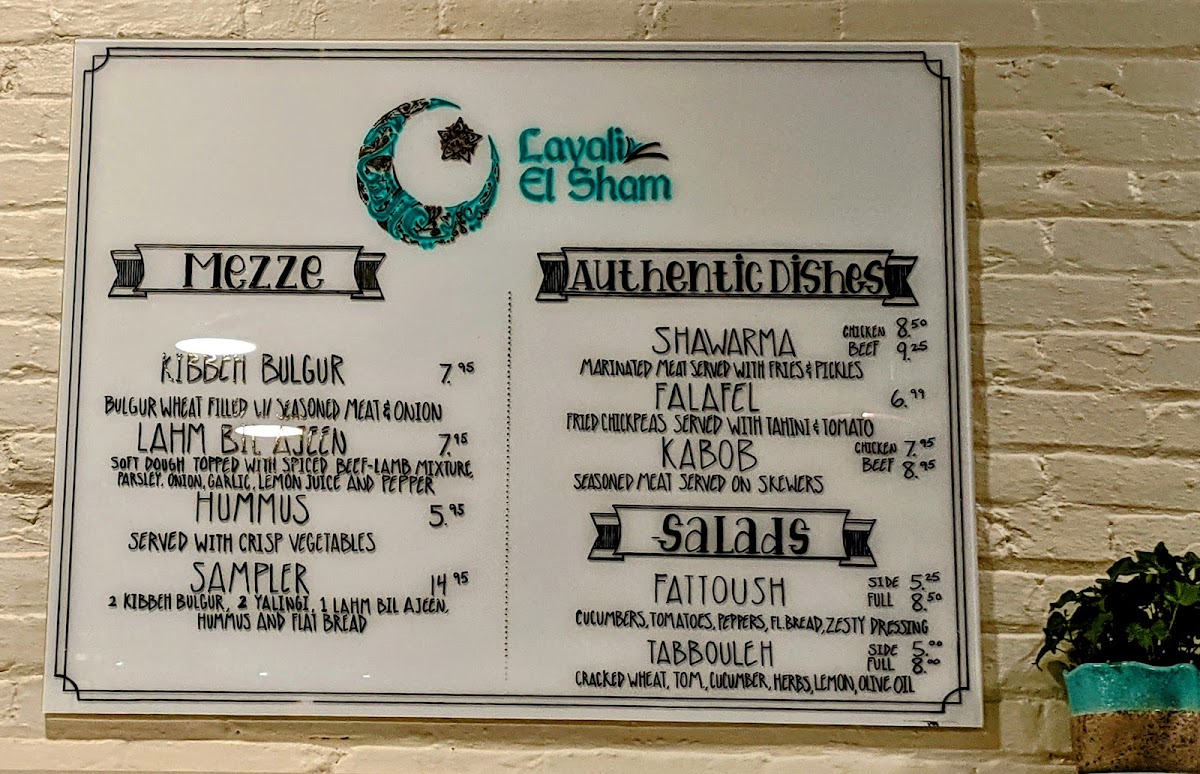 Layali
El Sham
Mezze
KIBBEH BULGUR 7.95
BULGUR WHEAT FILLED W/ SEASONED MEAT & ONION
LAHM BIL AJEEN 7.95
SOFT DOUGH TOPPED WITH SPICED BEEF-LAMB MIXTURE,
PARSLEY, ONION, GARLIC, LEMON JUICE AND PEPPER
HUMMUS 5.95
SERVED WITH CRISP VEGETABLES
SAMPLER 14.95
2 KIBBEH BULGUR, 2 YALINGI, 1 LAHM BIL AJEEN,
HUMMUS AND FLAT BREAD
Authentic Dishes
SHAWARMA CHICKEN 8.50
BEEF 9.25
MARINATED MEAT SERVED WITH FRIES & PICKLES
FALAFEL 6.99
FRIED CHICKPEAS SERVED WITH TAHINI & TOMATO
KABOB CHICKEN 7.95
BEEF 8.95
SEASONED MEAT SERVED ON SKEWERS
Salads
FATTOUSH SIDE 5.25
FULL 8.50
CUCUMBERS, TOMATOES, PEPPERS, FL. BREAD, ZESTY DRESSING
TABBOULEH SIDE 5.00
FULL 8.00
CRACKED WHEAT, TOM., CUCUMBER, HERBS, LEMON, OLIVE OIL